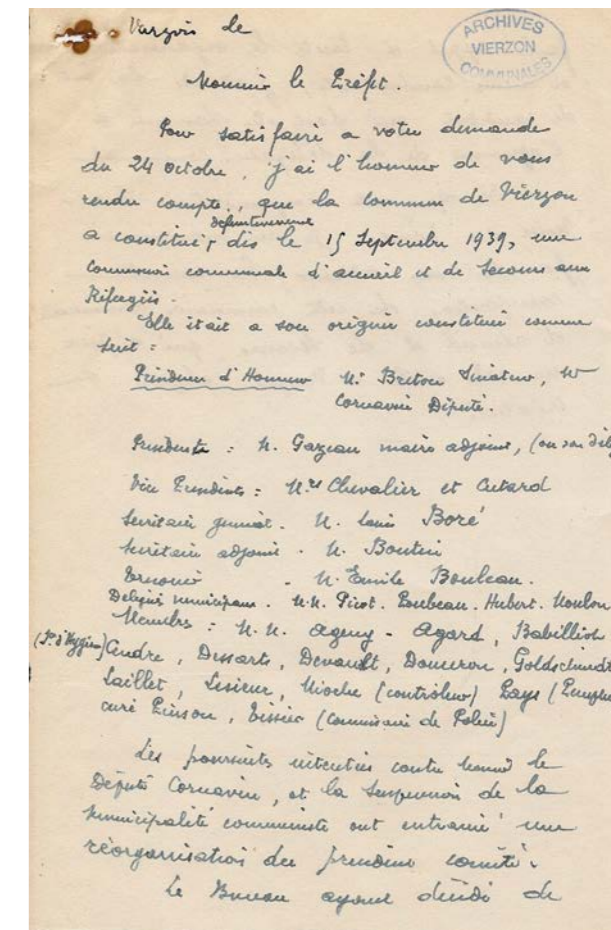 Vierzon le
ARCHIVES
VIERZON
COMMUNALES
Monsieur le Préfet.
Pour satisfaire a votre demande
du 24 octobre, j'ai l'honneur de vous
rendre compte, que la commune de Vierzon
définitivement
a constitué, dès le 15 Septembre 1939, une
Commission communale d'accueil et de secours aux
Réfugiés.
Elle était a son origine constituée comme
suit :
Présidence d'Honneur Mr Breton Sénateur, Mr
Cornavin Député.
Présidents : M. Gazeau maire adjoint, (ou son dél
Vice Présidents : Mrs Chevalier et Cutard
Secrétaire général. M. Louis Boré
Secrétaire adjoint. M. Boutin
Trésorier . M. Emile Bouleau.
Délégués municipaux. M.M. Picot. Boubeau. Hubert. Moulon
Membres : M.M. Ageny - Agard, Babilliot
(St d'Hygiène) Cendre, Dessarts, Devault, Domeron, Goldschmidt
Laillet, Lesieur, Mioche (contrôleur) Pays
curé Pinson, Tissier (Commissaire de Police)
Les poursuites intentées contre Monsieur le
Député Cornavin, et la suspension de la
Municipalité communiste ont entrainé une
réorganisation du premier comité.
Le Bureau ayant décidé de